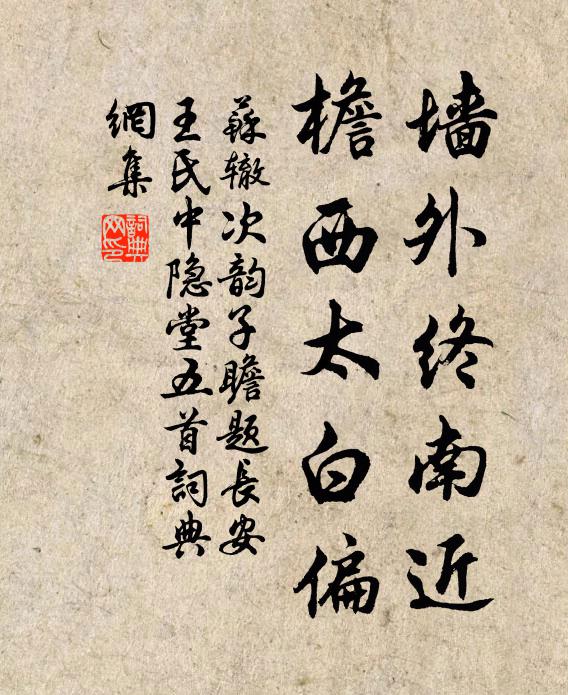 墙外终南近
檐西太白偏
蘇辙次韵子瞻题長安
王氏中隐堂五首詞典
網集
詞典
网印